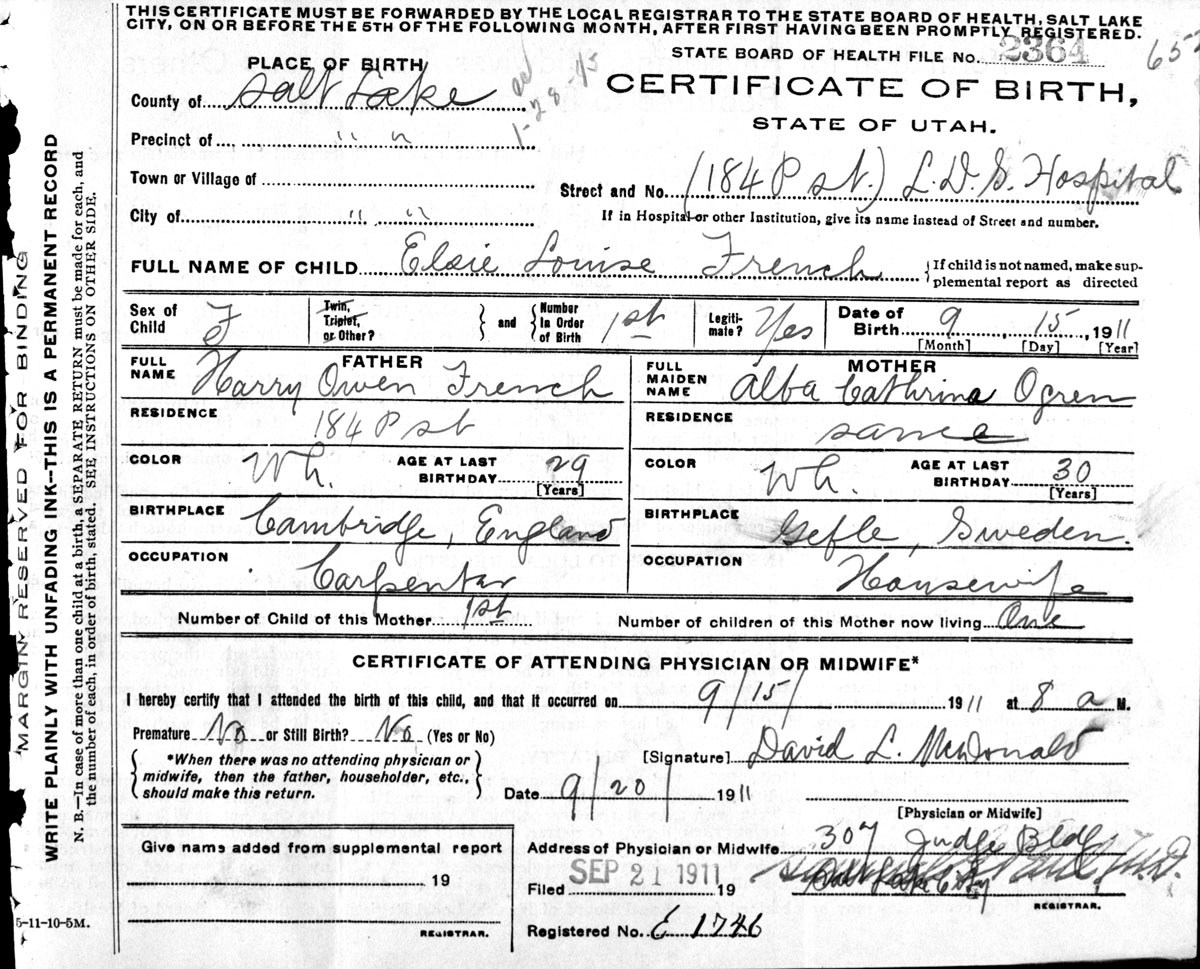 THIS CERTIFICATE MUST BE FORWARDED BY THE LOCAL REGISTRAR TO THE STATE BOARD OF HEALTH, SALT LAKE
CITY, ON OR BEFORE THE 5TH OF THE FOLLOWING MONTH, AFTER FIRST HAVING BEEN PROMPTLY REGISTERED.
STATE BOARD OF HEALTH FILE No. 2364
657
PLACE OF BIRTH
County of Salt Lake
1-28-43
CERTIFICATE OF BIRTH,
STATE OF UTAH.
Precinct of " "
Town or Village of
Street and No. (184 P st.) L.D.S. Hospital
City of " "
If in Hospital or other Institution, give its name instead of Street and number.
FULL NAME OF CHILD Elsie Louise French
If child is not named, make sup-
plemental report as directed
Sex of Child F
Twin, Triplet, or Other?
and
Number In Order of Birth 1st
Legiti-mate? Yes
Date of Birth 9 15 1911
[Month] [Day] [Year]
FATHER
FULL NAME Harry Owen French
MOTHER
FULL MAIDEN NAME Alba Cathrina Ogren
RESIDENCE 184 P st
RESIDENCE same
COLOR Wh. AGE AT LAST BIRTHDAY 29
[Years]
COLOR Wh. AGE AT LAST BIRTHDAY 30
[Years]
BIRTHPLACE Cambridge, England
BIRTHPLACE Gefle, Sweden.
OCCUPATION Carpenter
OCCUPATION Housewife
Number of Child of this Mother 1st
Number of children of this Mother now living One
CERTIFICATE OF ATTENDING PHYSICIAN OR MIDWIFE*
I hereby certify that I attended the birth of this child, and that it occurred on 9/15/ 1911 at 8 a M.
Premature No or Still Birth? No (Yes or No)
*When there was no attending physician or
midwife, then the father, householder, etc.,
should make this return.
[Signature] David L. McDonald
Date 9/20/ 1911
[Physician or Midwife]
Give name added from supplemental report
19
REGISTRAR.
Address of Physician or Midwife 307 Judge Bldg
Salt Lake City
Filed SEP 21 1911 19
M.D.
REGISTRAR.
Registered No. E 1746
5-11-10-5M.
MARGIN RESERVED FOR BINDING
WRITE PLAINLY WITH UNFADING INK—THIS IS A PERMANENT RECORD
N. B.—In case of more than one child at a birth, a SEPARATE RETURN must be made for each, and
the number of each, in order of birth, stated. SEE INSTRUCTIONS ON OTHER SIDE.